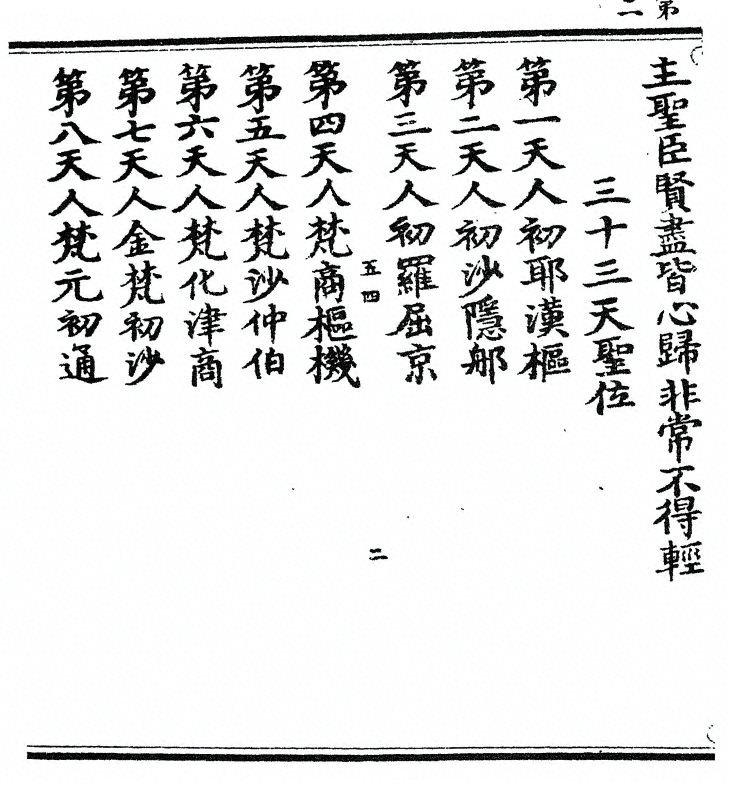 第
二
主聖臣賢盡皆心歸非常不得輕
三十三天聖位
第一天人初耶漢樞
第二天人初沙隱郍
第三天人初羅屈京
五四
二
第四天人梵商樞機
第五天人梵沙仲伯
第六天人梵化津商
第七天人金梵初沙
第八天人梵元初通